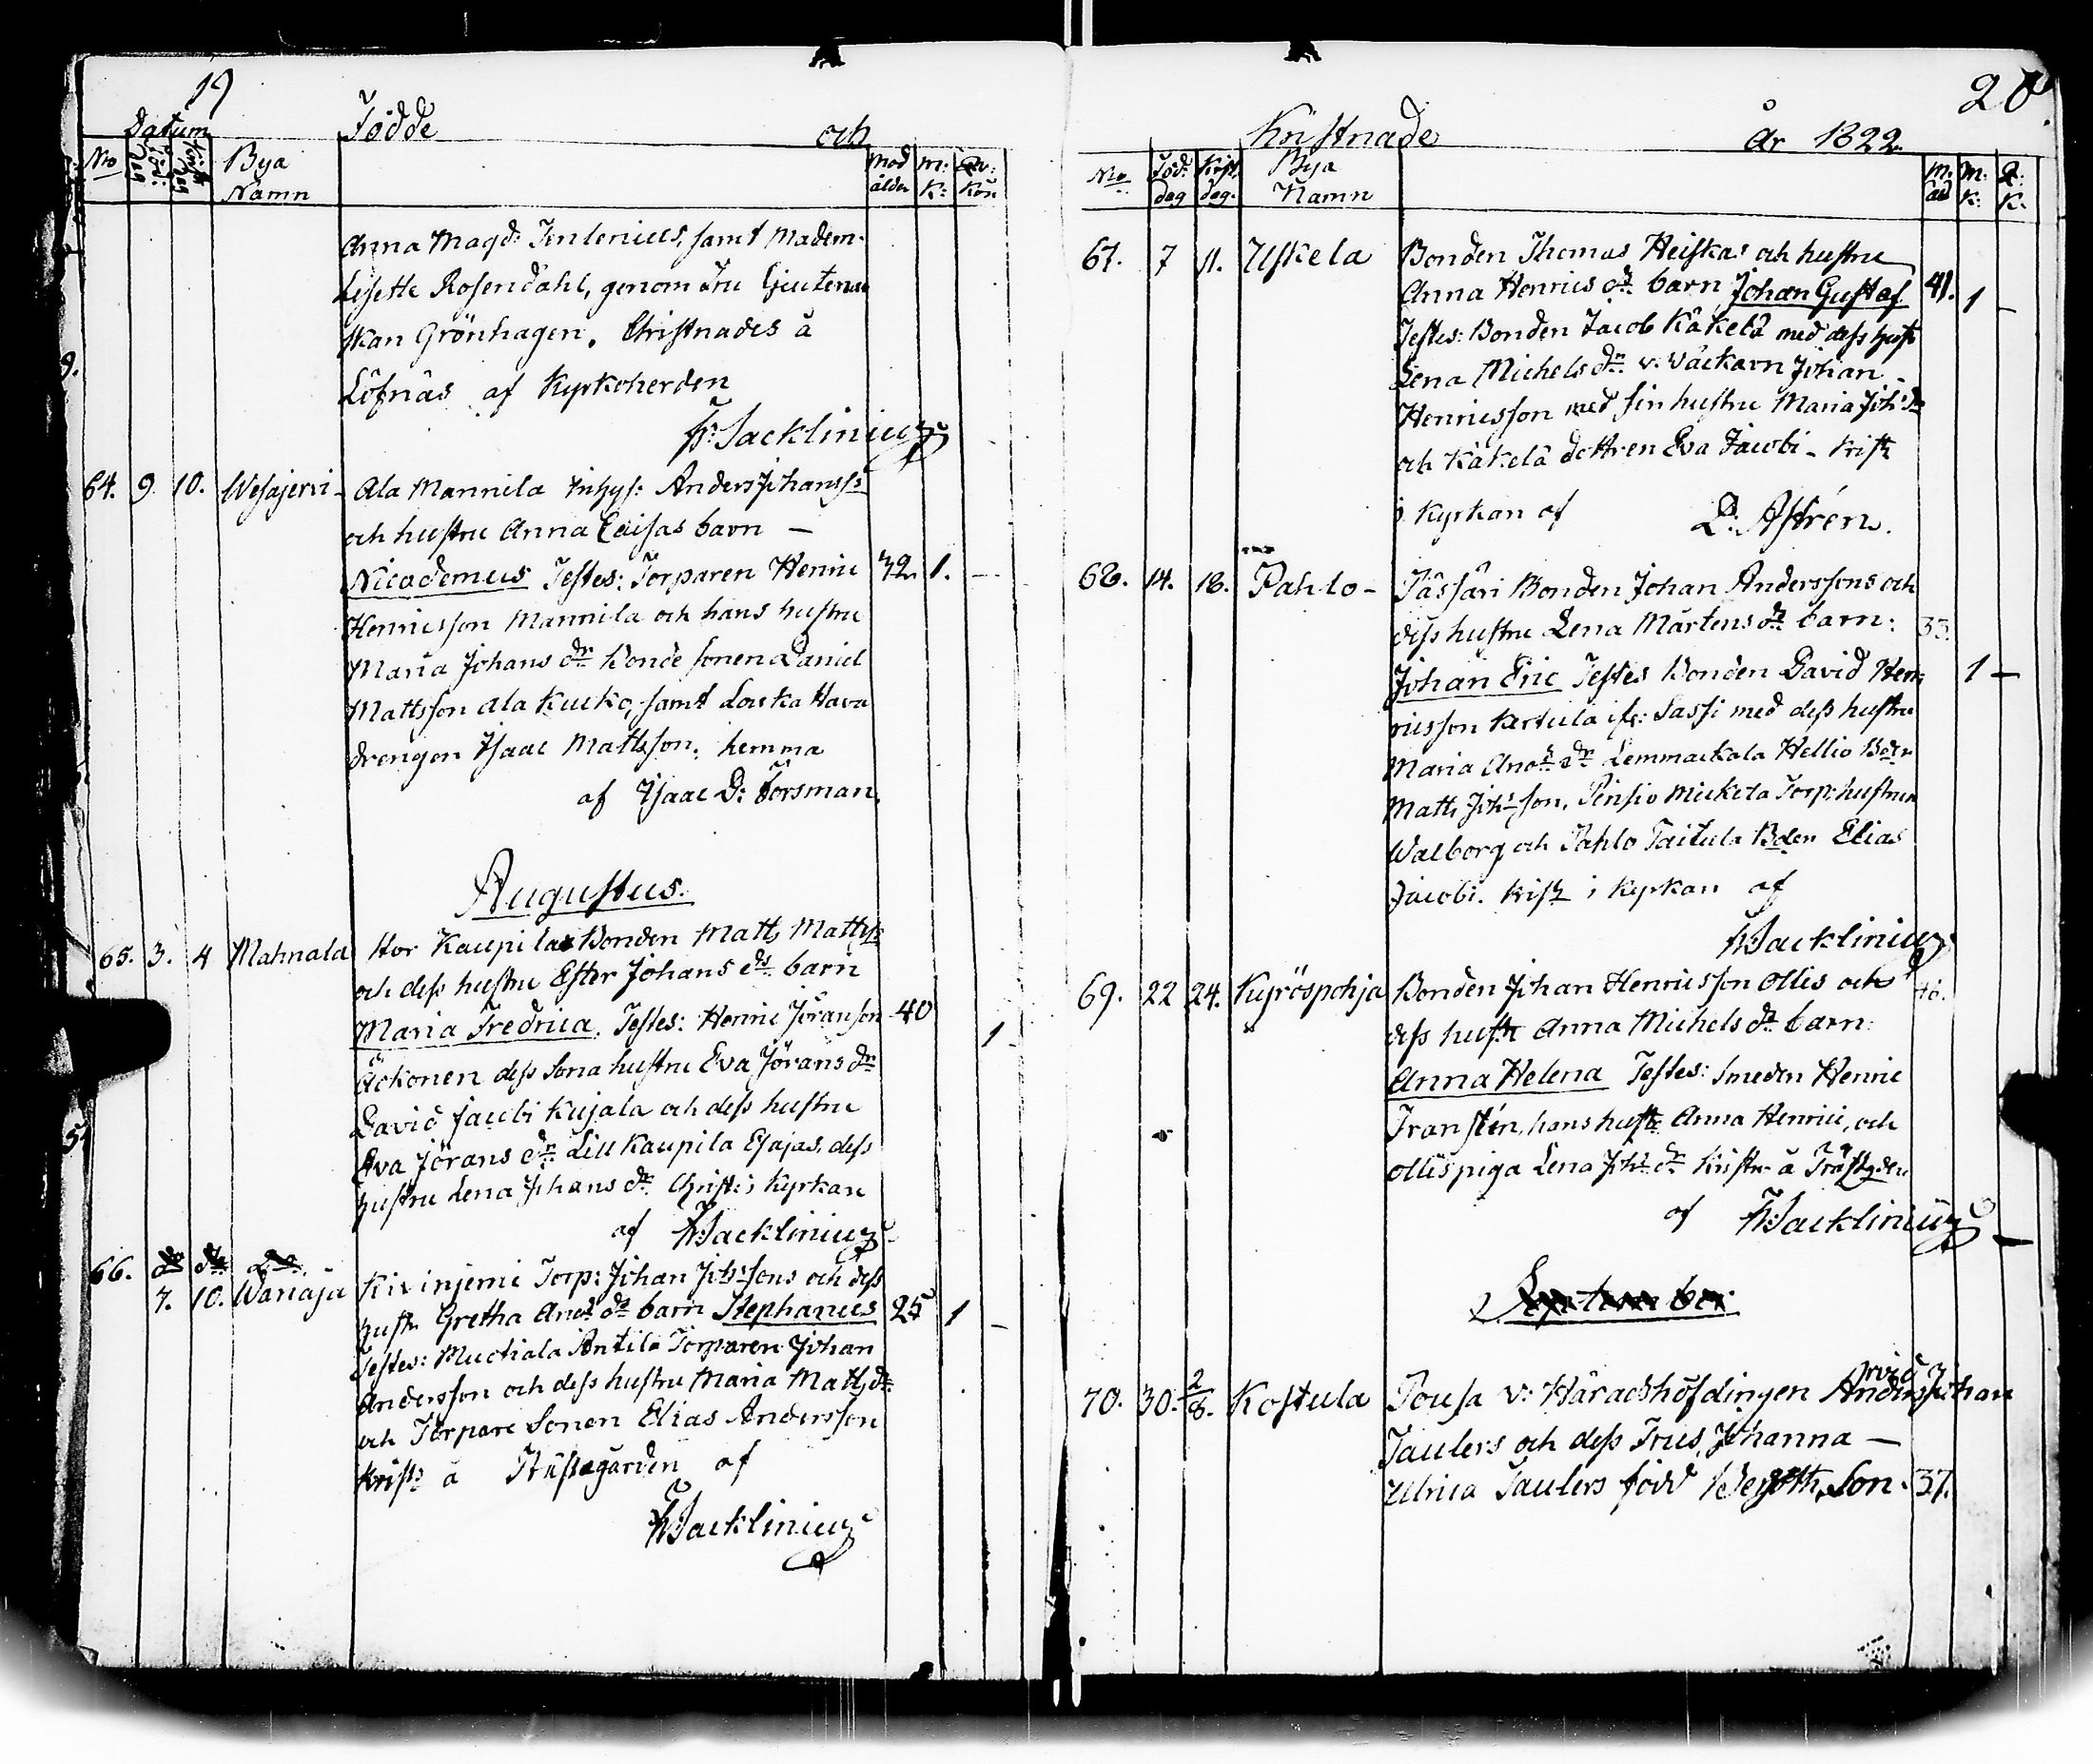 19
Datum
Födde
och
No
Bya
Namn
Mod
ålder
m:
k:
Qv:
Kön
Anna Magd: Inlenius, samt Madem.
Lisette Rosendahl, genom Fru Gieutenan
skan Grönhagen. Christnades å
Löfnäs af Kyrkoherden
Fr: Sacklinius
64. 9. 10. Wesajervi - Ala Mannila Inhys: Anders Johanss:
och hustru Anna Caisas barn —
Nicodemus Testes: Torparen Henric 32. 1. —
Henricsson Mannila och hans hustru
Maria Johans dr Bonde sonen Daniel
Mattsson Ala Kucko, samt Louka Hava
drengen Isaac Mattsson. hemma
af Isaac D: Forsman.
Augustus.
65. 3. 4 Mahnala Stor Kaupila Bonden Matts Mattss
och dess hustru Ester Johans dr. barn
Maria Fredrica. Testes: Henric Jöranson 40 1
Äckönen dess Sona hustru Eva Jörans dr
David Jacobi Kujala och dess hustru
Eva Jörans dr. Lill Kaupila Esajas, dess
hustru Lena Johans dr. Christ: i Kyrkan
af Fr: Sacklinius
66. 7. 10. Wanaja Kivinjemi Torp: Johan Joh:sons och dess
hustr Gretha And: dr barn Stephanus 25 1 —
Testes: Muctiala Antila Torparen Johan
Andersson och dess hustru Maria Matts dr.
och Torpare Sonen Elias Andersson
Krist: å Prestegården af
Fr: Sacklinius
20.
Kristnade
År 1822.
No
Föd:
dag
Krist.
dag.
Bya
Namn
M.
ald
M:
K:
Q:
K.
67. 7 11. Uskela Bonden Thomas Heiskas och hustru
Anna Henrics dr. barn Johan Gustaf 41. 1 —
Testes: Bonden Jacob Käkelä med dess hust
Lena Michels dr. v. Väckarn Johan
Henricsson med sin hustru Maria Joh: dr
och Käkelä dottren Eva Jacobi - Krist
i Kyrkan af D: Astrén.
68. 14. 18. Pahlo - Jässäri Bonden Johan Anderssons och
dess hustru Lena Mårtens dr. barn: 33.
Johan Eric Testes Bonden David Hen 1 —
ricsson Kertula if: Sassi med dess hustru
Maria And: dr Lemmackala Hellio Bden
Matts Joh:son, Pinsiö Mickela Torp: hustrun
Walborg och Pahlo Taitula Bden Elias
Jacobi. Krist i Kyrkan af
Fr: Sacklinius
69. 22 24. Kyröspohja Bonden Johan Henricsson Ollis och 46.
dess hustr Anna Michels dr. barn:
Anna Helena Testes: Smeden Henric
Transtén, hans hustr. Anna Henrici, och
Ollis piga Lena Joh: dr Kristn. å Prästgden
af Fr: Sacklinius —
September
70. 30. 2/8. Kostula Pousa v: Häradshöfdingen Arvid Johan
Taulers och dess Frus, Johanna —
Ulrica Taulers född Son. 37.